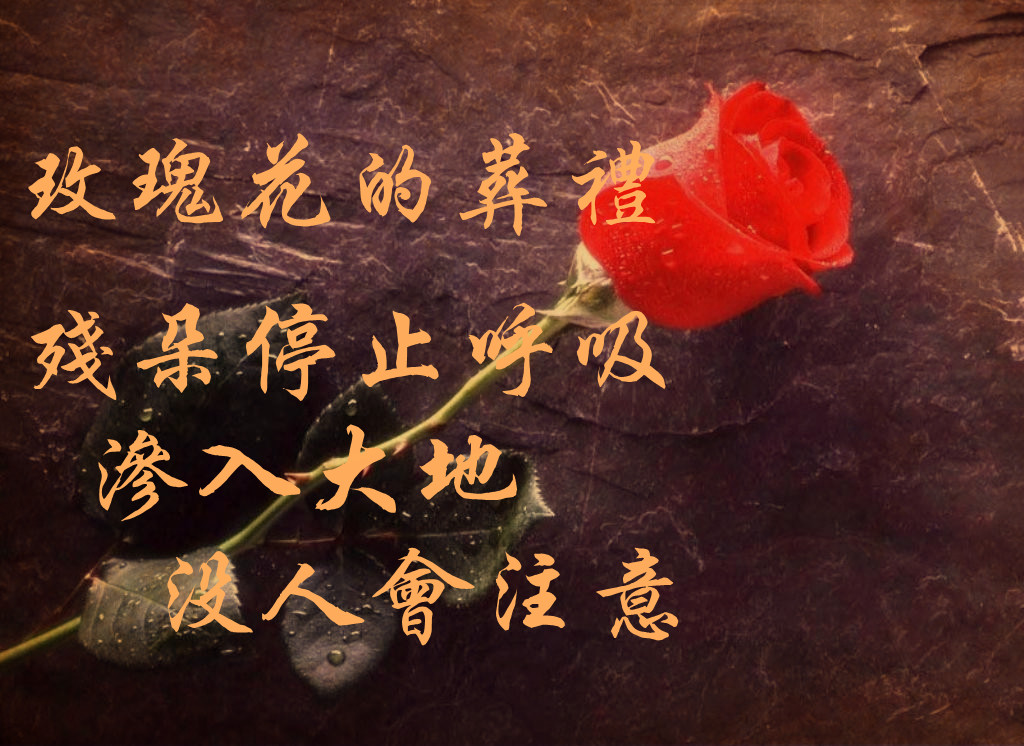 玫瑰花的葬禮
殘朵停止呼吸
滲入大地
没人會注意